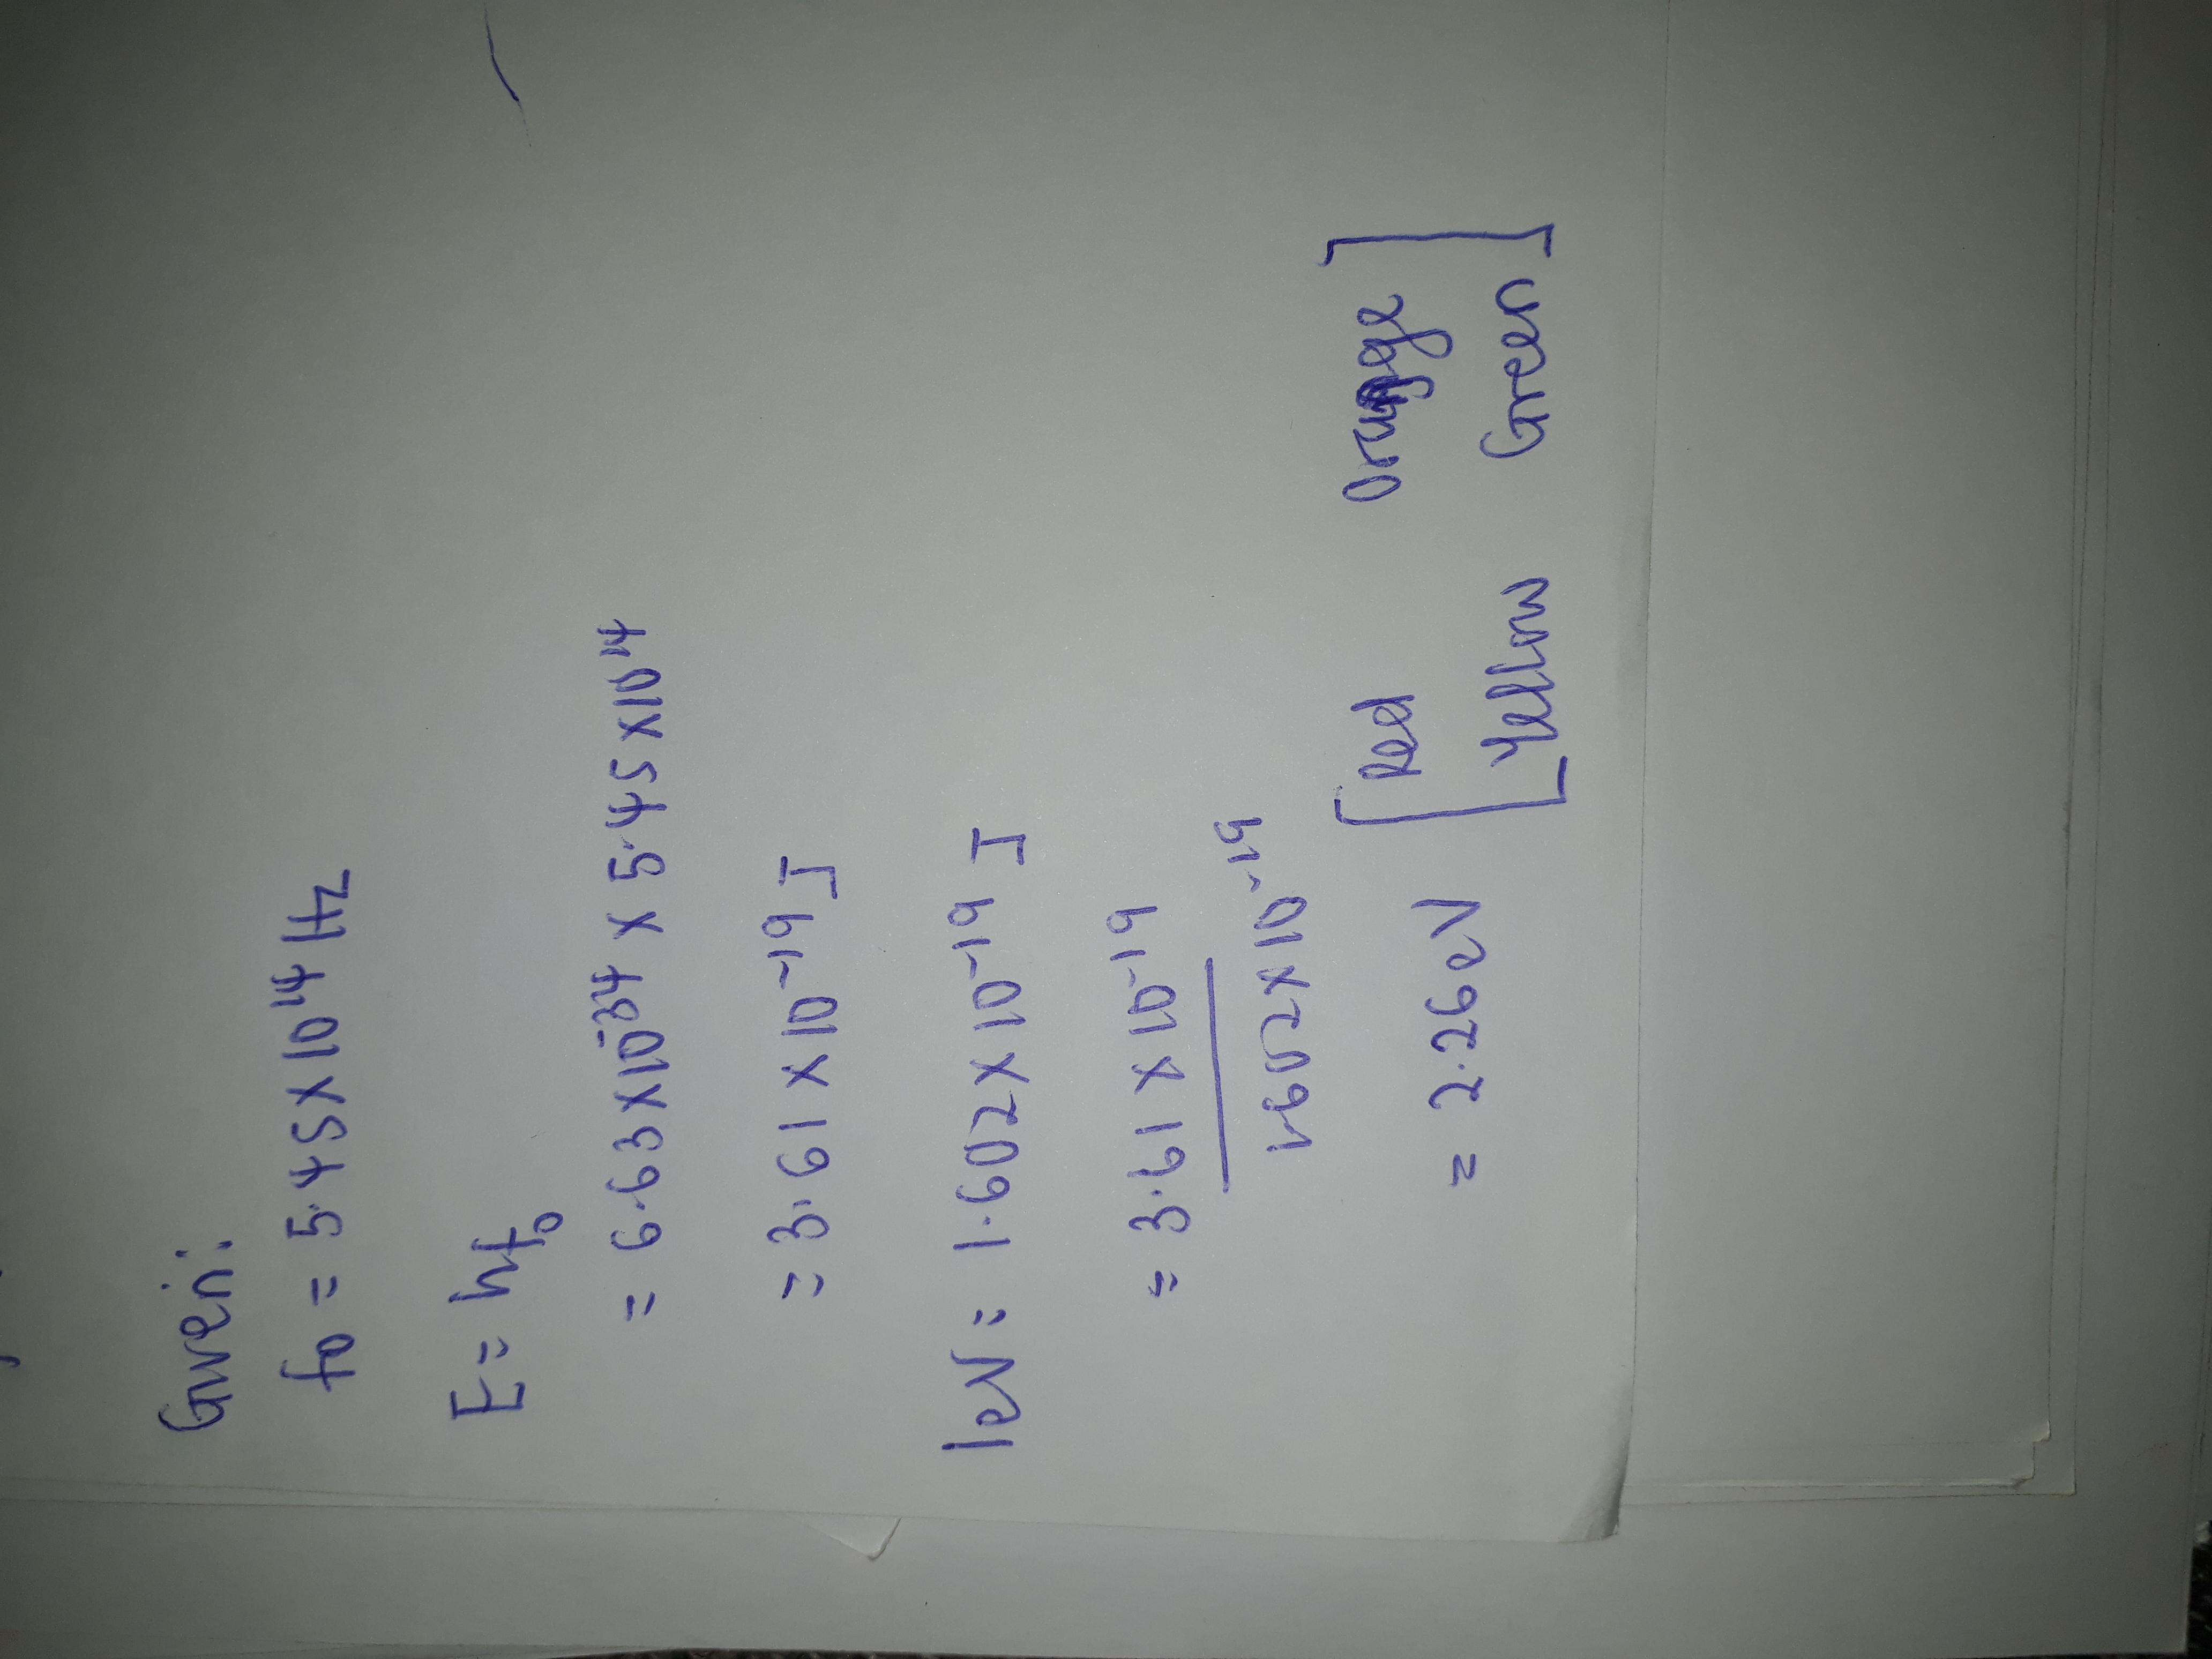 Given:
fo = 5.45×10¹⁴ Hz
E = hfo
= 6.63×10⁻³⁴ × 5.45×10¹⁴
= 3.61 × 10⁻¹⁹ J
1eV = 1.602×10⁻¹⁹ J
= 3.61 × 10⁻¹⁹
1.602×10⁻¹⁹
= 2.26eV [Red Orange
Yellow Green]